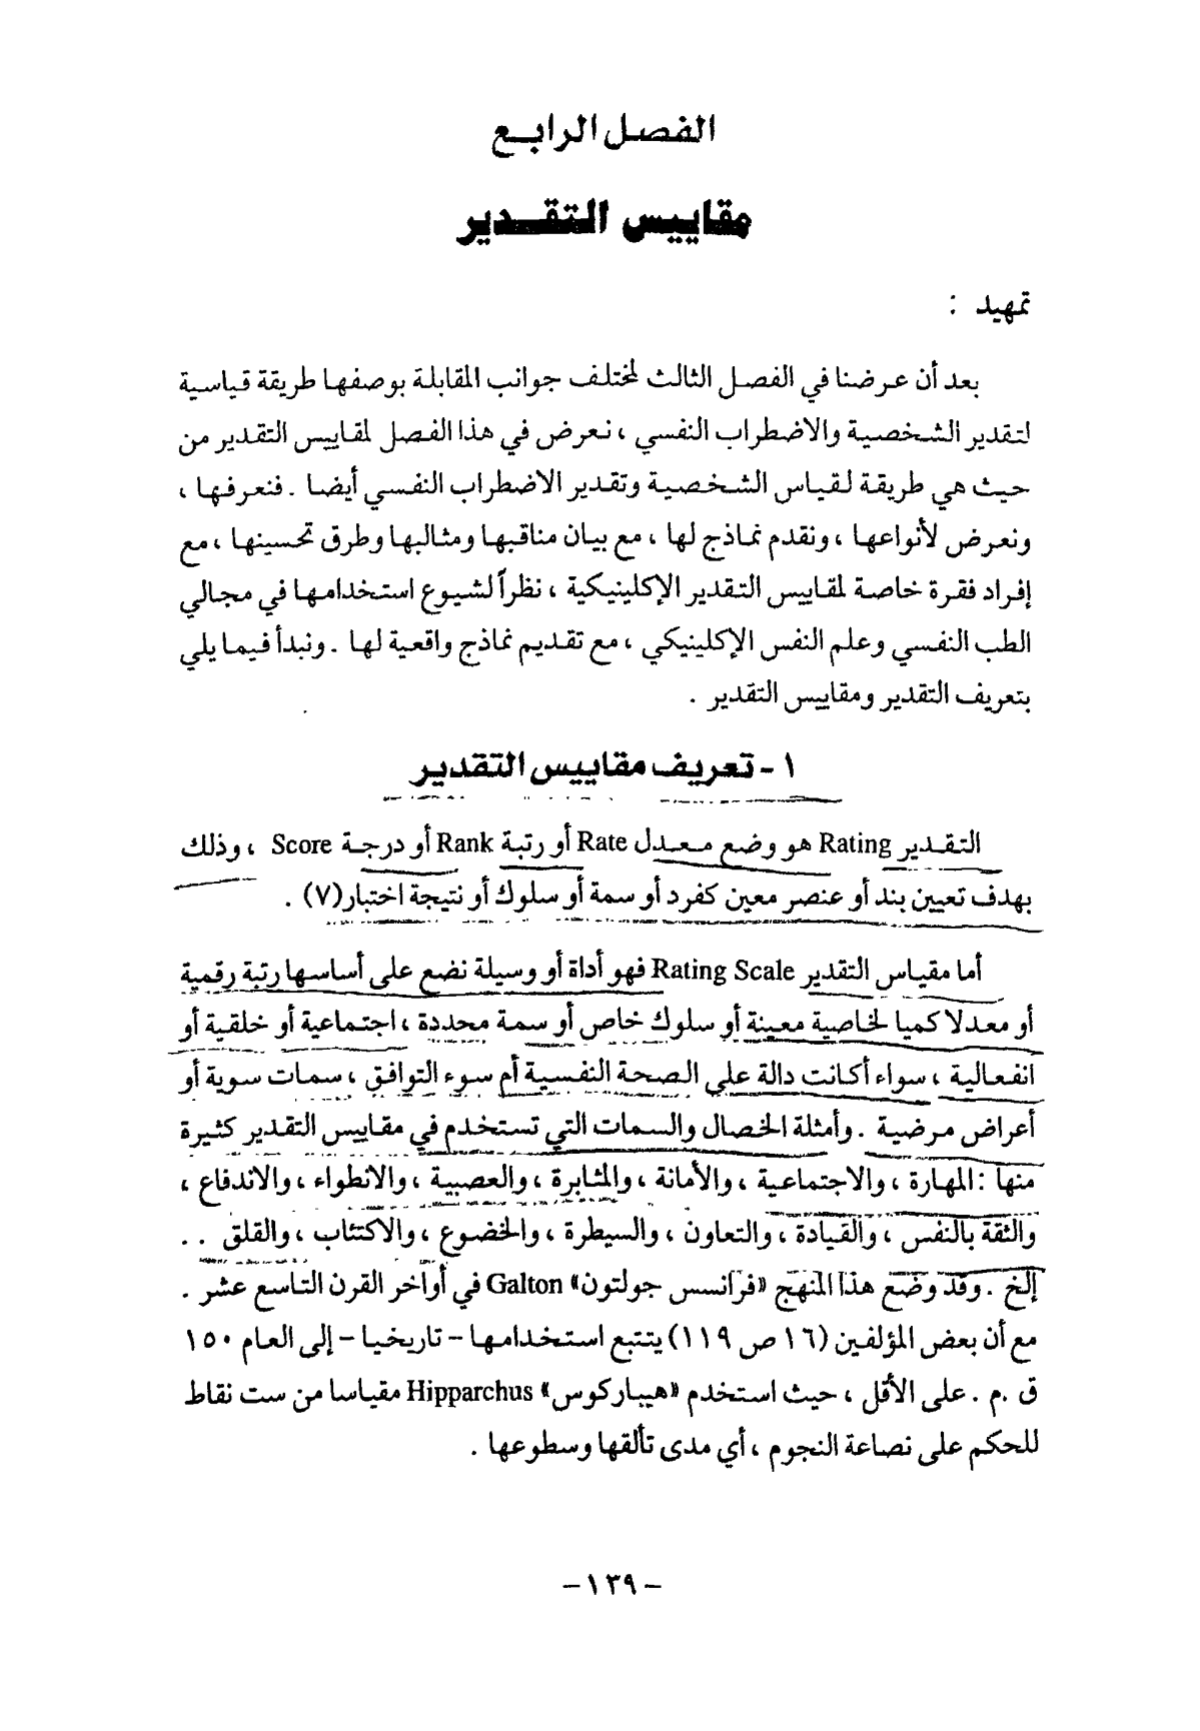 الفصل الرابع
مقاييس التقدير
تمهيد :
بعد أن عرضنا في الفصل الثالث لمختلف جوانب المقابلة بوصفها طريقة قياسية
لتقدير الشخصية والاضطراب النفسي ، نعرض في هذا الفصل لمقاييس التقدير من
حيث هي طريقة لقياس الشخصية وتقدير الاضطراب النفسي أيضا . فنعرفها ،
ونعرض لأنواعها ، ونقدم نماذج لها ، مع بيان مناقبها ومثالبها وطرق تحسينها ، مع
إفراد فقرة خاصة لمقاييس التقدير الإكلينيكية ، نظراً لشيوع استخدامها في مجالي
الطب النفسي وعلم النفس الإكلينيكي ، مع تقديم نماذج واقعية لها . ونبدأ فيما يلي
بتعريف التقدير ومقاييس التقدير .
١ - تعريف مقاييس التقدير
التقدير Rating هو وضع معدل Rate أو رتبة Rank أو درجة Score ، وذلك
بهدف تعيين بند أو عنصر معين كفرد أو سمة أو سلوك أو نتيجة اختبار(٧) .
أما مقياس التقدير Rating Scale فهو أداة أو وسيلة نضع على أساسها رتبة رقمية
أو معدلا كميا لخاصية معينة أو سلوك خاص أو سمة محددة ، اجتماعية أو خلقية أو
انفعالية ، سواء أكانت دالة على الصحة النفسية أم سوء التوافق ، سمات سوية أو
أعراض مرضية . وأمثلة الخصال والسمات التي تستخدم في مقاييس التقدير كثيرة
منها : المهارة ، والاجتماعية ، والأمانة ، والمثابرة ، والعصبية ، والانطواء ، والاندفاع ،
والثقة بالنفس ، والقيادة ، والتعاون ، والسيطرة ، والخضوع ، والاكتئاب ، والقلق . .
إلخ . وقد وضع هذا المنهج «فرانسس جولتون» Galton في أواخر القرن التاسع عشر .
مع أن بعض المؤلفين (١٦ ص ١١٩) يتتبع استخدامها - تاريخيا - إلى العام ١٥٠
ق .م . على الأقل ، حيث استخدم «هيباركوس» Hipparchus مقياسا من ست نقاط
للحكم على نصاعة النجوم ، أي مدى تألقها وسطوعها .
– ١٣٩ –